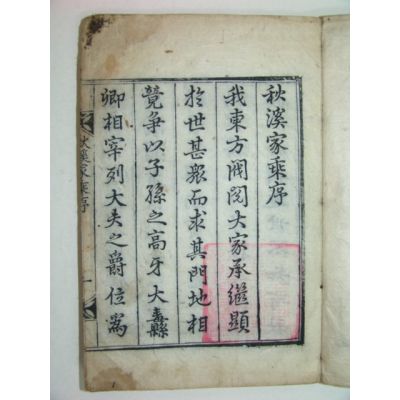 秋溪家乘序
我東方閥閱大家承繼顯
於世甚眾而求其門地相
竸爭以子孫之高牙大纛
卿相宰列大夫之爵位爲
秋溪家乘序
一